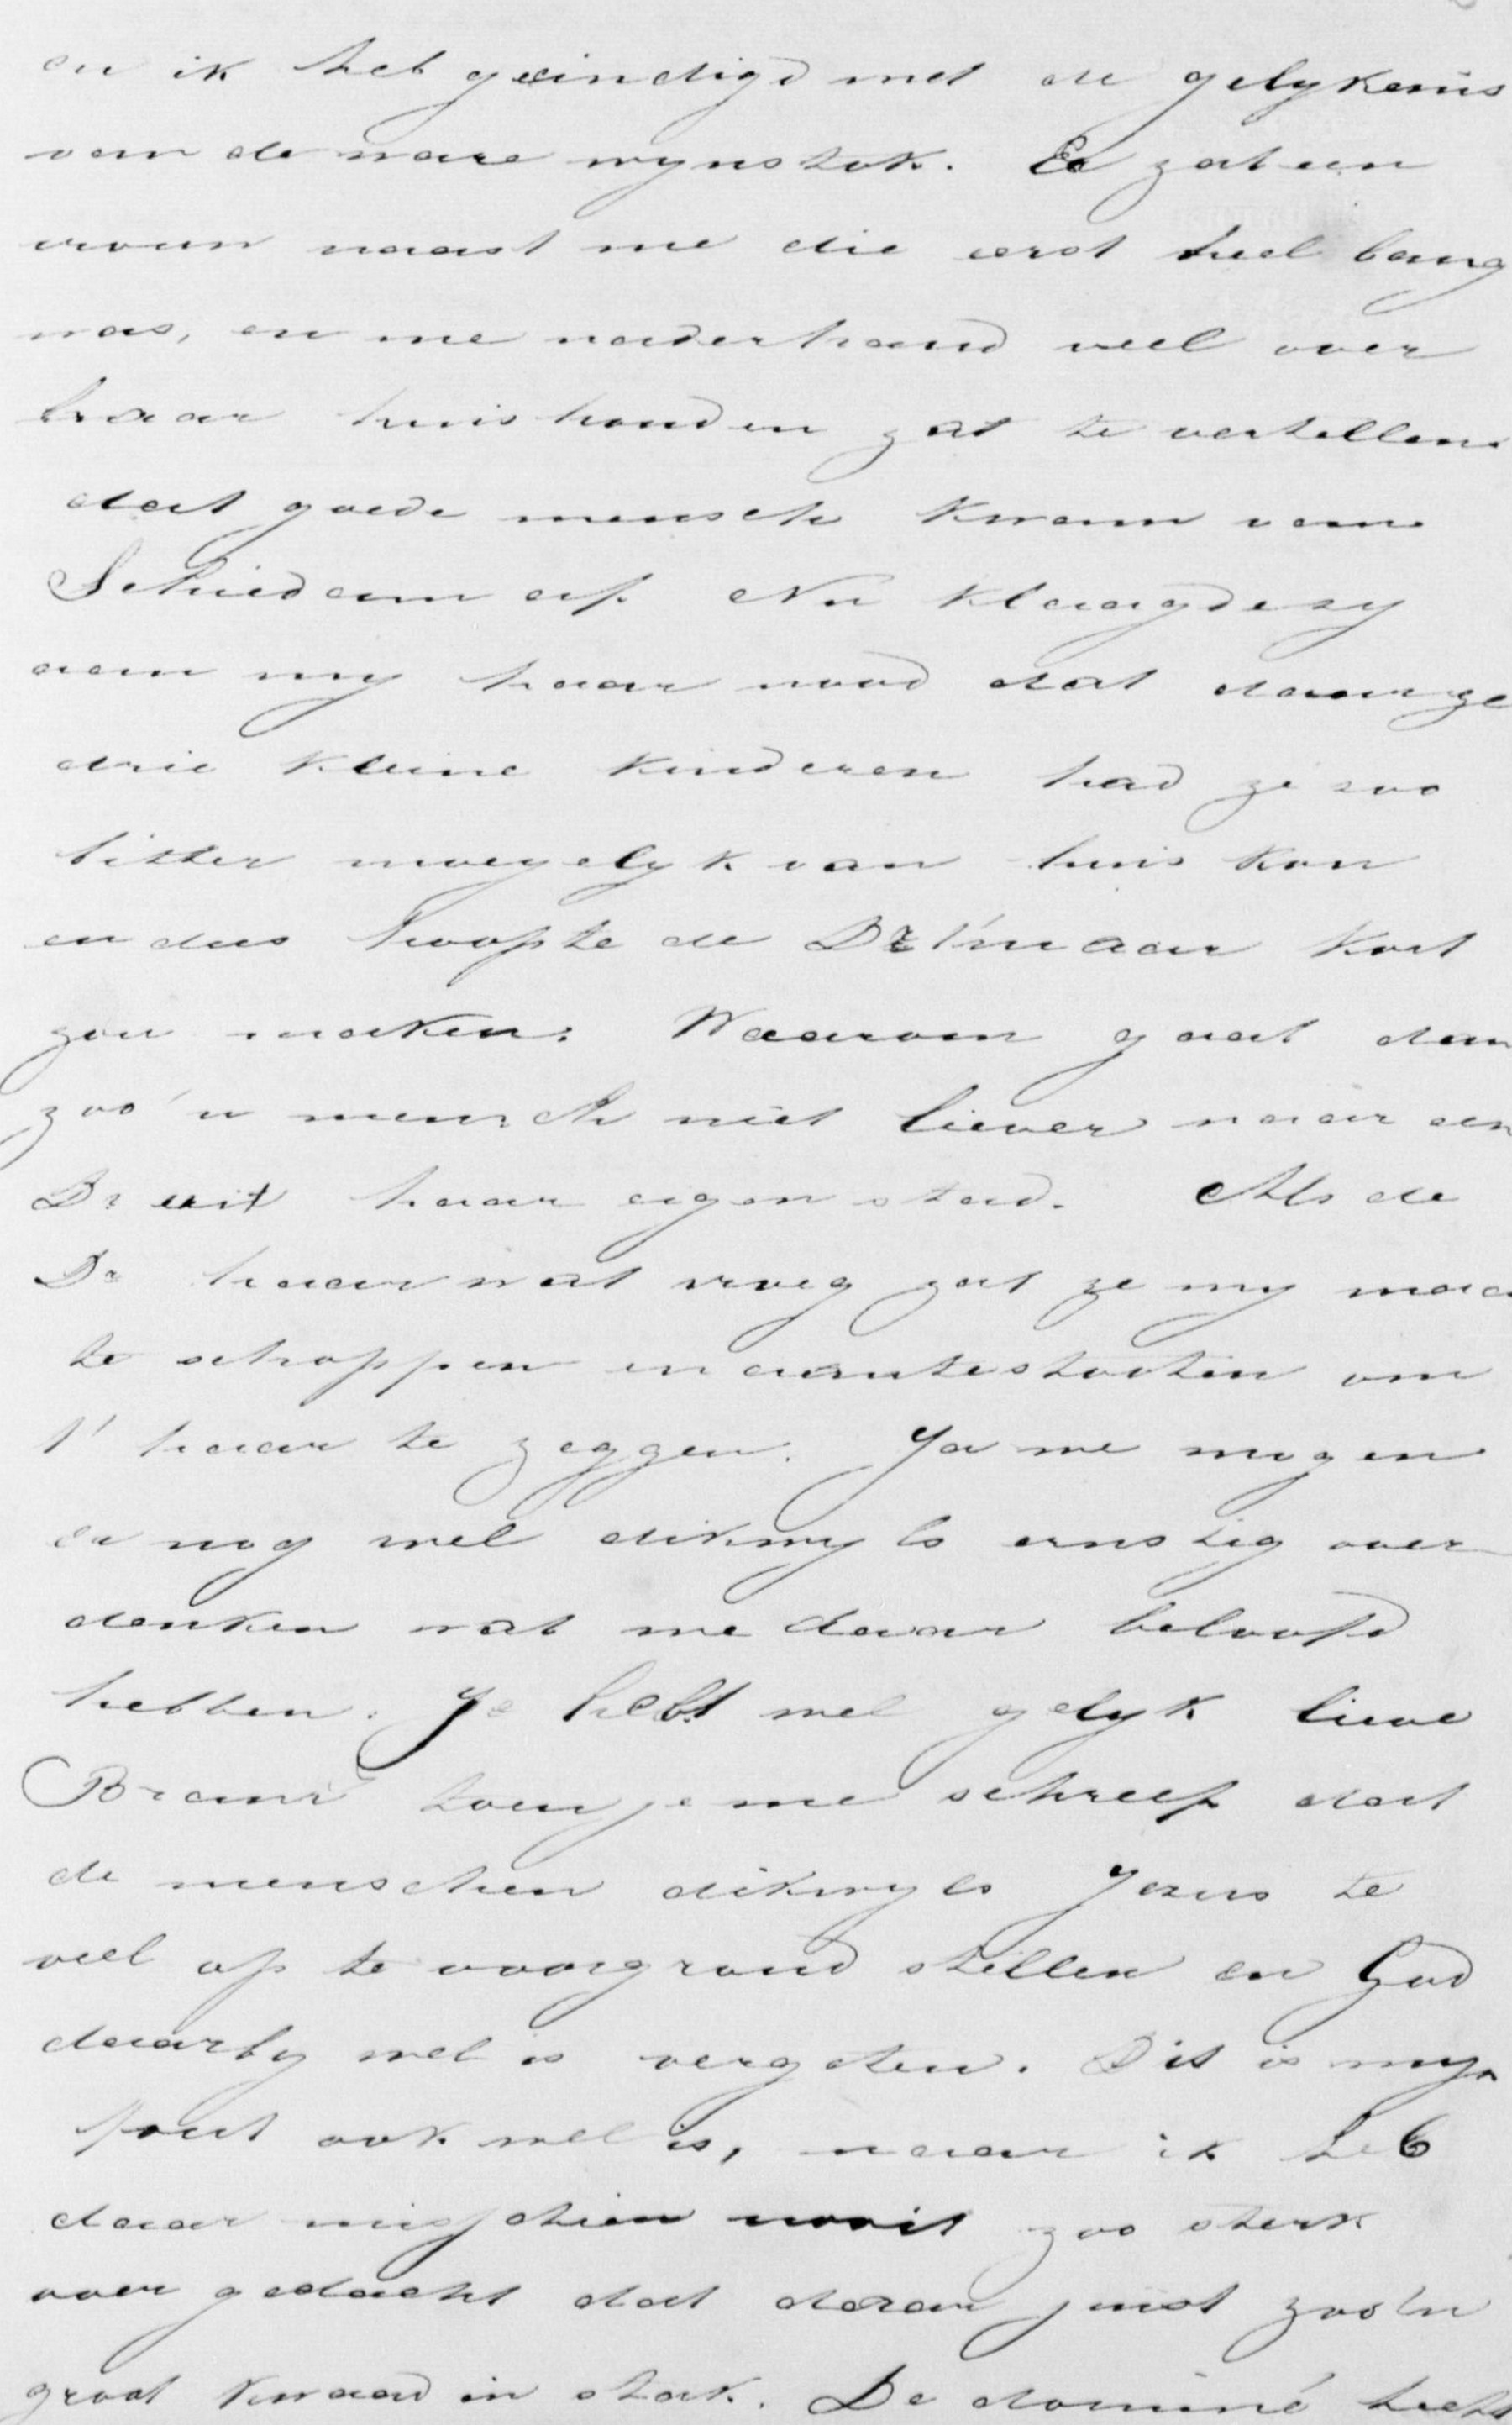 en ik heb geëindigd met de gelykenis
van de ware wynstok. Er zat een
vrouw naast me die eerst heel bang
was, en me naderhand veel over
haar huishouden zat te vertellen.
dat goede mensch kwam van
Schiedam af. Nu klaagde zy
aan my haar nood dat daar ze
drie kleine kinderen had ze zoo
bitter moeyelyk van huis kon
en dus hoopte de Dr t' maar kort
zou maken. Waarom gaat dan
zoo'n mensch niet liever naar een
Dr uit haar eigen stad. Als de
Dr haar wat vroeg zat ze my maar
te schoppen en aantestooten om
t' haar te zeggen. Ja we mogen
er nog wel dikwyls ernstig over
denken wat we daar beloofd
hebben. Je hebt wel gelyk lieve
Bram toen je me schreef dat
de menschen dikwyls Jezus te
veel op te voorgrond stellen en God
daarby wel is vergeten. Dit is myn
fout ook wel is, maar ik heb
daar misschien nooit zoo sterk
over gedacht dat daar juist zoo'n
groot kwaad in stak. De dominé heeft